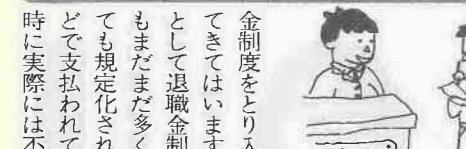 金制度をとり入
てきてはいます
として退職金制
もまだまだ多く
ても規定化され
どで支払われて
時に実際には不